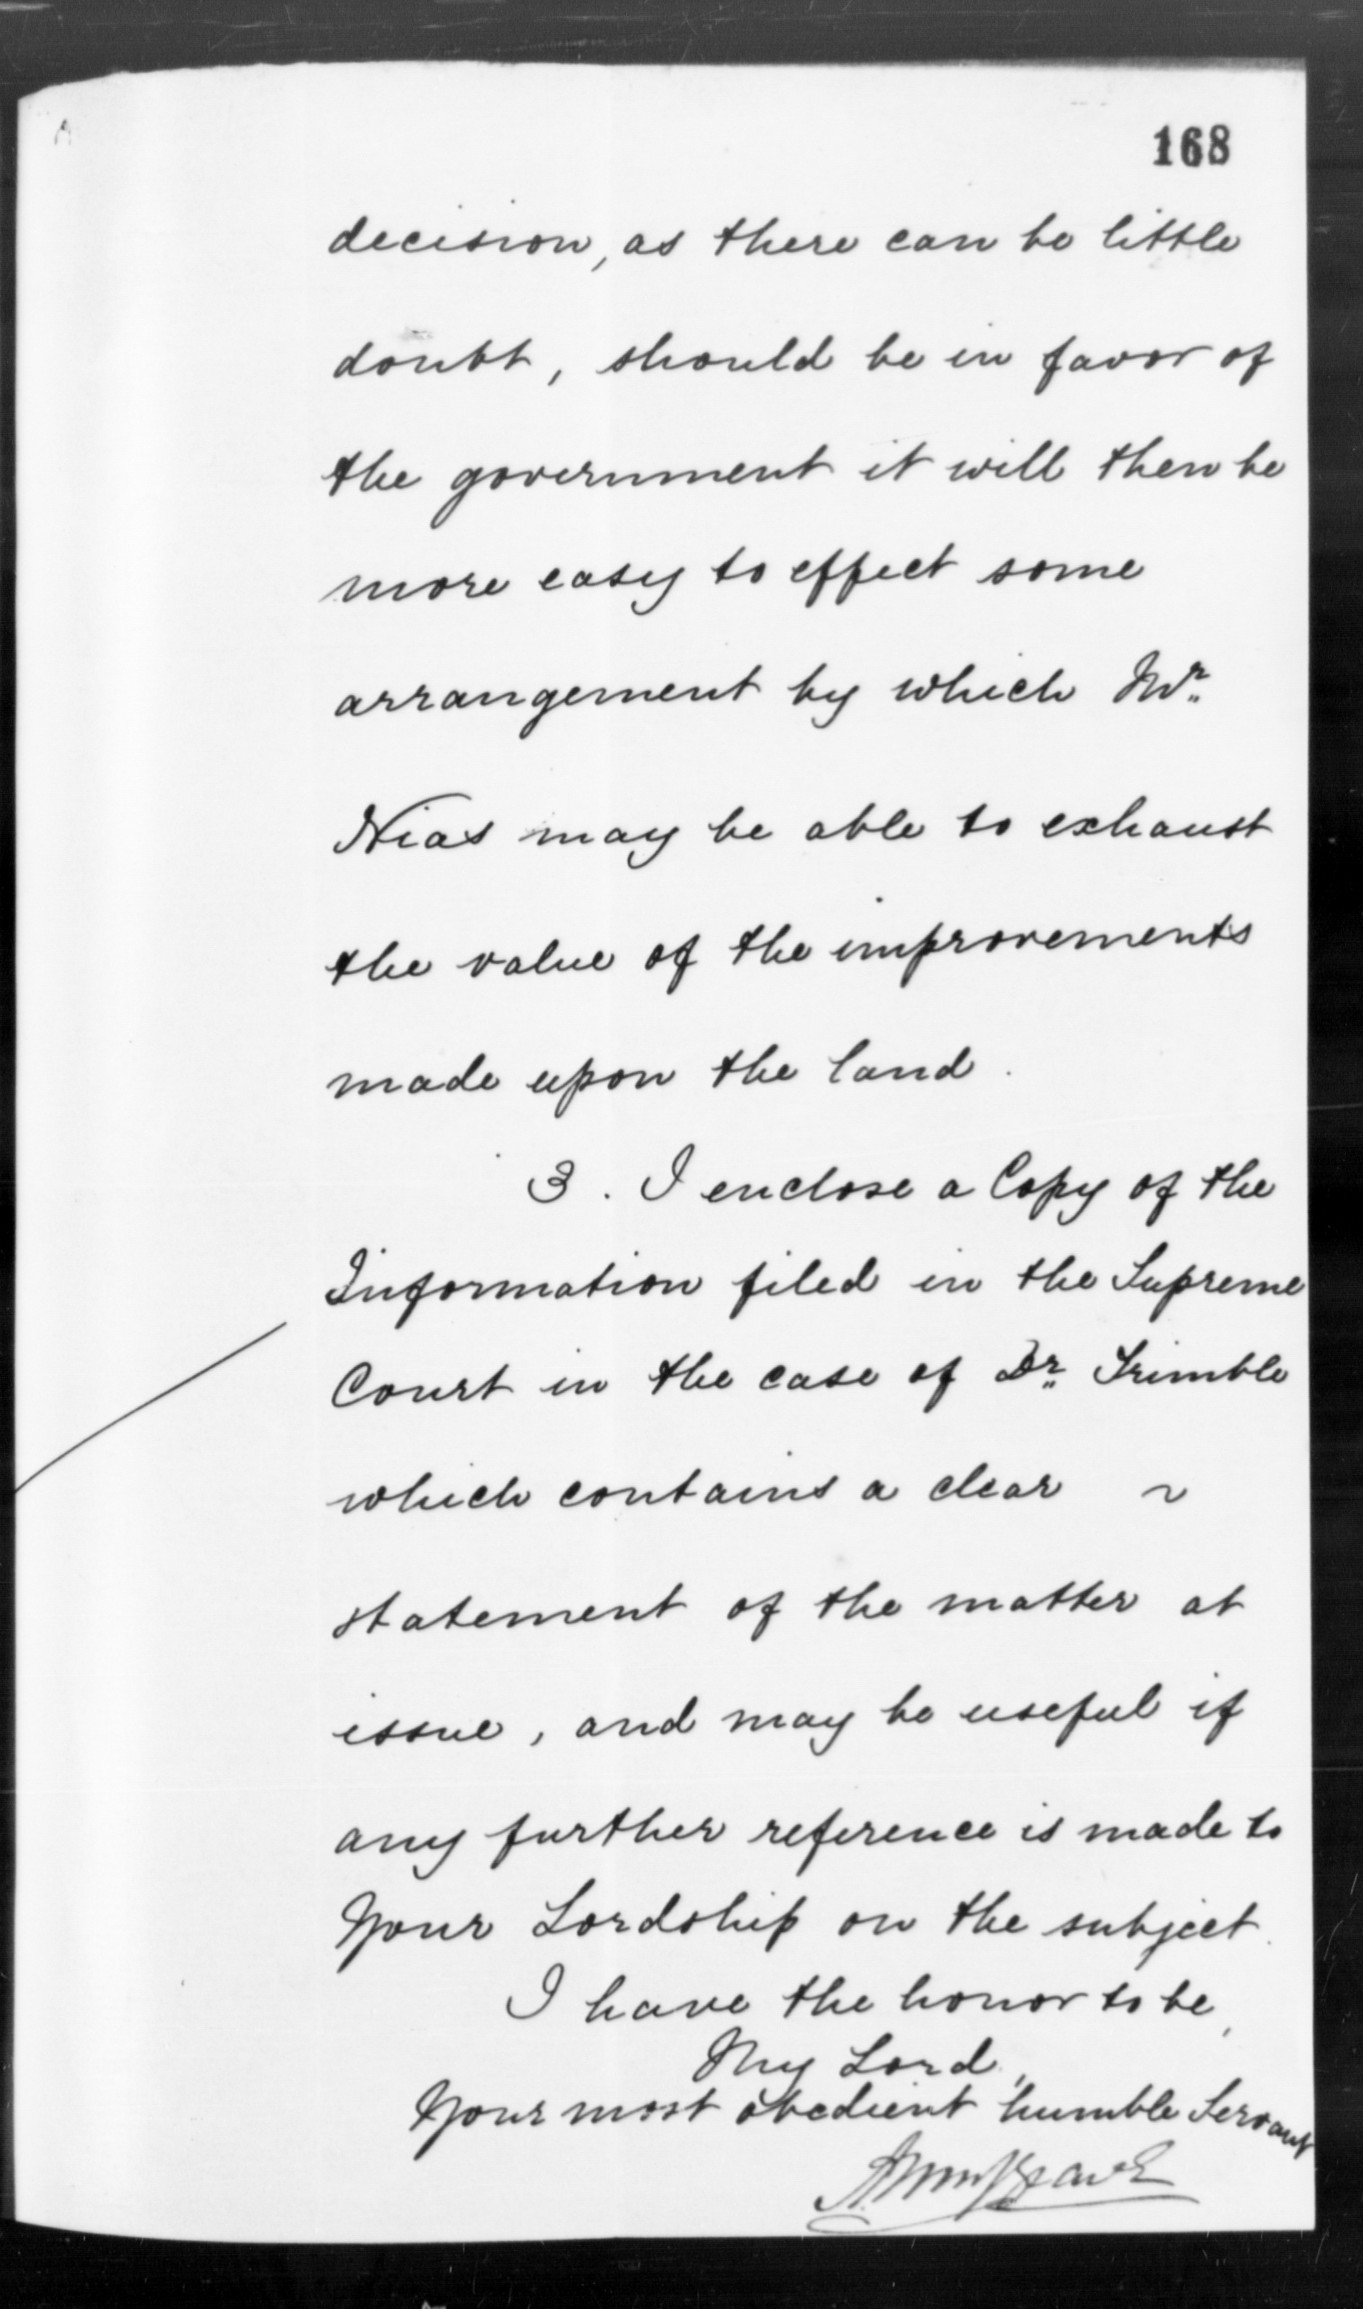 168
decision, as there can be little
doubt, should be in favor of
the government it will then be
more easy to effect some
arrangement by which Mr.
Nias may be able to exhaust
the value of the improvements
made upon the land.
3. I enclose a Copy of the
Information filed in the Supreme
Court in the case of Dr. Trimble
which contains a clear ~
statement of the matter at
issue, and may be useful if
any further reference is made to
Your Lordship on the subject.
I have the honor to be,
My Lord,
Your most obedient humble Servant